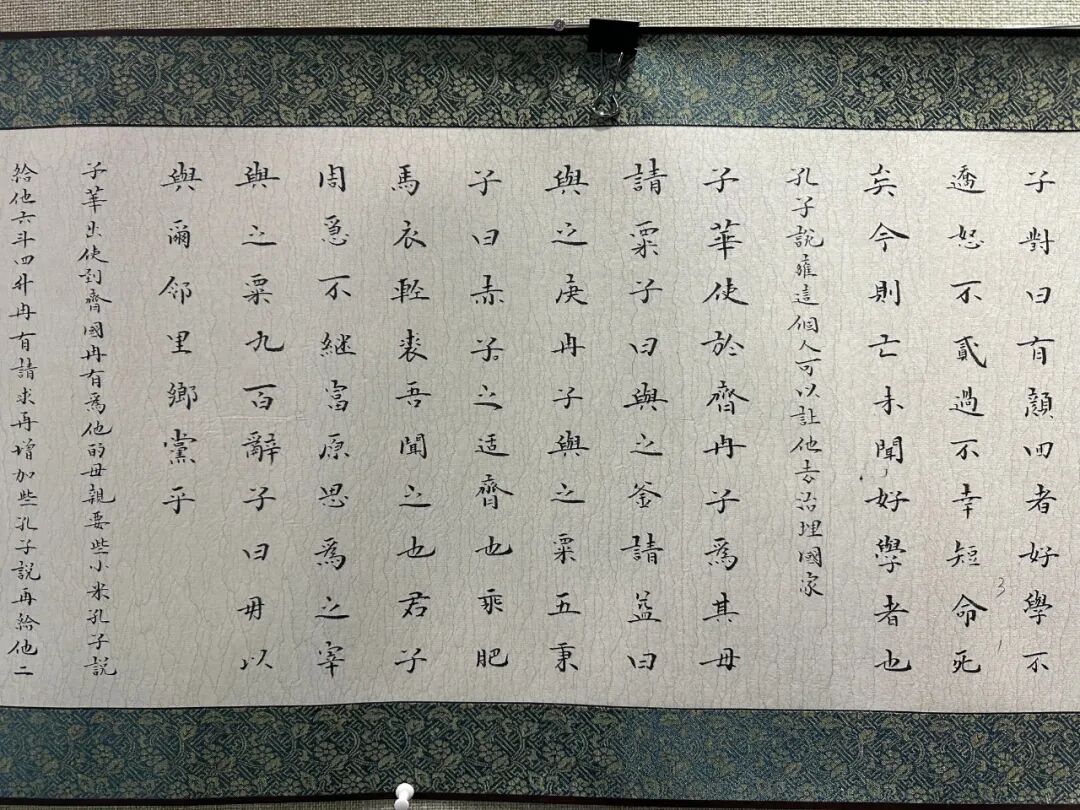 子對曰有顏回者好學不
遷怒不貳過不幸短命死
矣今則亡未聞好學者也
孔子說雍這個人可以讓他去治理國家
子華使於齊冉子為其母
請粟子曰與之釜請益曰
與之庾冉子與之粟五秉
子曰赤之适齊也乘肥
馬衣輕裘吾聞之也君子
周急不繼富原思為之宰
與之粟九百辭子曰毋以
與爾鄰里鄉黨乎
子華出使到齊國冉有為他的母親要些小米孔子說
給他六斗四升冉有請求再增加些孔子說再給他二